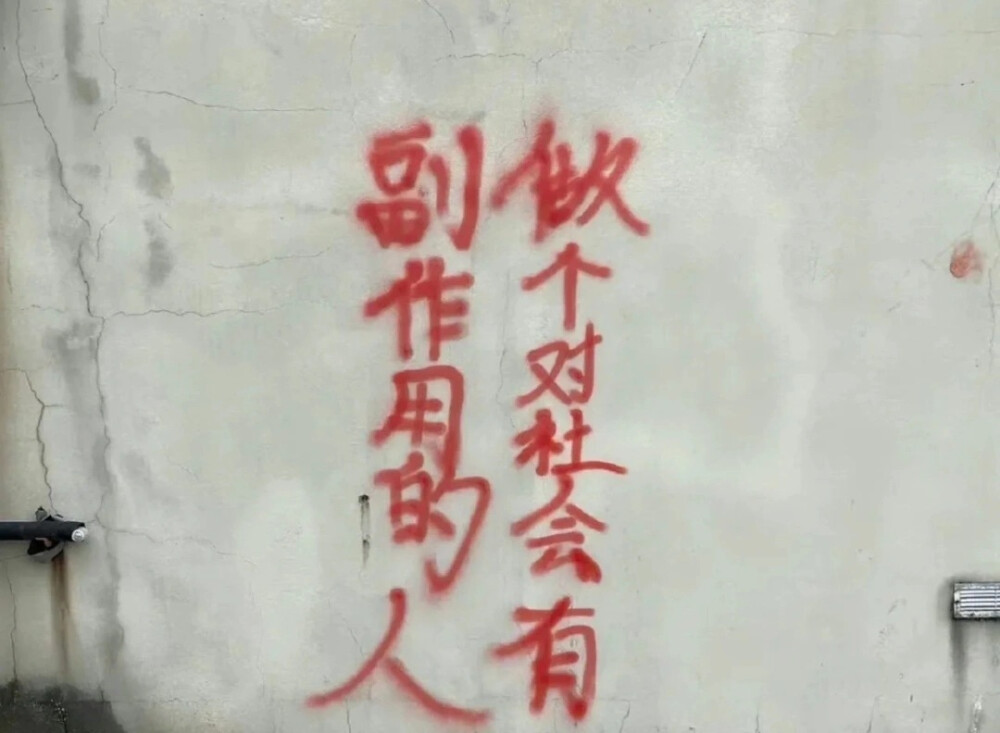 做个对社会有
副作用的人